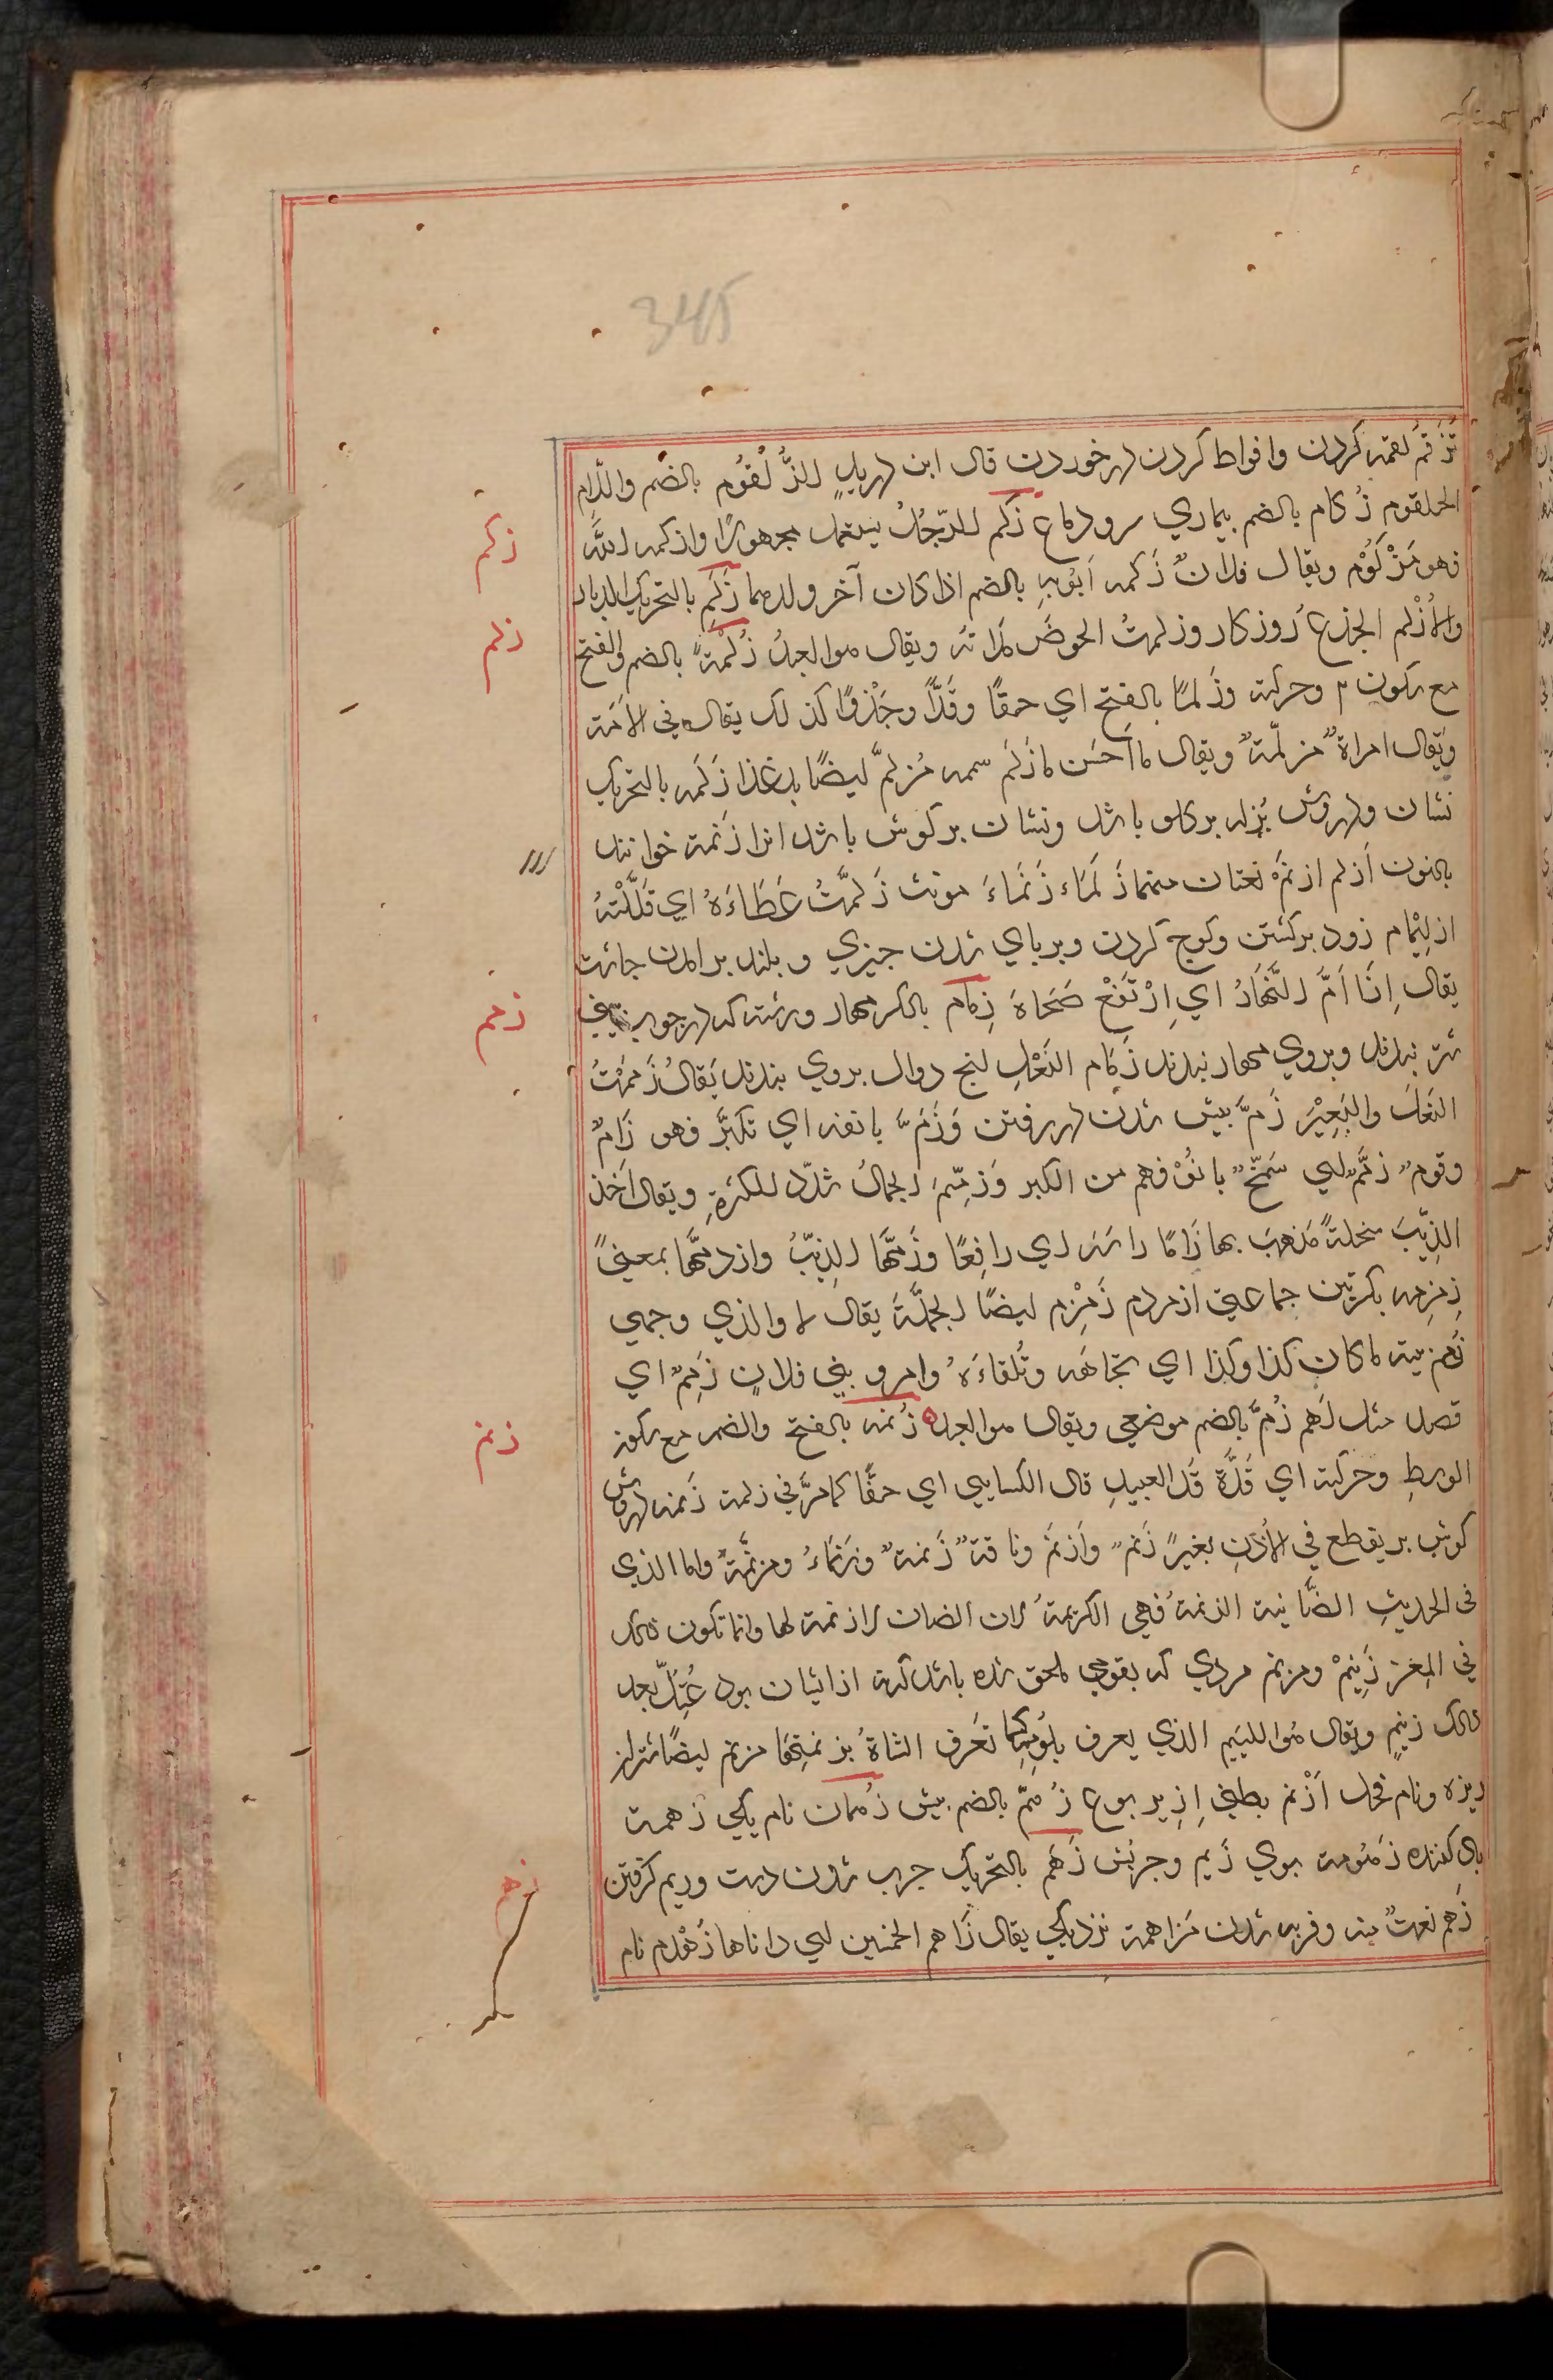 345
تَزَقّمُ لقمه كردن وافراط كردن در خوردن قال ابن دريد الزُّلْقُوم بالضم واللام
الحلقوم زُكام بالضم بيماري سرودماغ زكم الرّجلُ يستعمل مجهولًا وازكمه اللهُ
فهو مَزْكُوْم ويقال فلانٌ زَكمه اَبَوَيهِ بالضم اذا كان آخر ولدهما زَلَم بالتحريك
والاَزْلم الجذع روزكار وزلمتُ الحوضَ ملاته ويقال هوالعبدُ زُلْمَةً بالضم والفتح
مع سكون وحركته وزَلمًا بالفتح اي حقًا وقدًّا وحذوًا كذلك يقال في الامَة
ويقال امراة مزلّمة ويقال ما اَحسَن ما زَلَم سهمه مُزلّم ايضًا بدغذا زَلمه بالتحريك
نشان ودروش بُزكه بركلو باشد ونشان بركوش باشد انرا زنمة خوانند
بالنون اَزلم ازنمُ نعتان منهما زَلمَاء زَنمَاءَ مونث زَلمّتُ عَطَاءَهُ اي قَلَّلْتهُ
ازليْمام زود بركشتن وكوچ كردن وبرپاي شدن چيزي و بلند برامدن چاشت
يقال اِزْلَامَّ النَّهَارُ اي اِرْتَفَعَ ضَحَاءَهُ زِمام بالكسر مهار ورشته كه در چوب بيني
شتر بندند وبروي مهار بندند زمام النَعْلِ انچ دوال بروي بندند يُقالُ زَممْتُ
النعلَ والبَعِيْرَ زَمّ پيش شدن در رفتن وَزَمَّ بانفه اي تكبَّر فهو زَامٌّ
وقومٌ زمَّمٌ اي شمّخٌ بانُوْفهم من الكبر وَزمّم الجمالُ شدّد للكثرةِ ويقال اَخذ
الذِئبَ سخلةً فذهبَ بها زَامًّا راسَه اي رافعًا وزَمّهَا الذِئبُ وازدمّهَا بمعنيً
زِمزِمه بكسرتين جماعتي از مردم زَمْزِم ايضًا الجملّة يقال لا والذي وجهي
زَمم بيته ما كان كذا وكذا اي تجاهَه وتُلقاءَهُ وامرو بني فلانٍ زمَمٌ اي
قصد مثل اَهم زُمّ بالضم موضعي ويقال هوالعبد زُنمه بالفتح والضم مع سكون
الوسطِ وحركته اي قَدَّهُ قَدَّ العبيدِ قال الكسايي اي حقًا كما مرَّ في زلمة زَنمه دروش
كوش بر يقطع في الاُذنِ بعيرٌ زَنمٌ وَاَزنمُ وناقةٌ زَنمةٌ وزنماءُ ومزنّمةٌ واما الذي
في الحديثِ الضَّانية الزنمةُ فهي الكريمةُ لان الضان لا زنمة لها وانما تكون ذلك
في المِعْز زَنِيْمْ ومزنم مردي كه بقومي ملحق شده باشد كه نه ازايشان بود عُتُلّ بعد
ذالك زنيمٍ ويقال هوا للئيم الذي يعرف بلؤمِه كما تعرف الشاةُ بزنمتِها مزنم ايضًا شتران
ريزه ونام فحل اَزْنم بطني اِز يربوع زُهمّ بالضم پيش زُهمان نام سكي زهمة
بوي كنده زَهُومة بوي زيم وچربش زَهَم بالتحريك چرب شدن دست وريم كرفتن
زَهم نعتٌ منه وفربه شدن مُزاهمة نزديكي يقال زَاهم الخمسين اي داناها زَهْدم نام
زكم
زلم
زمم
زنم
زهم